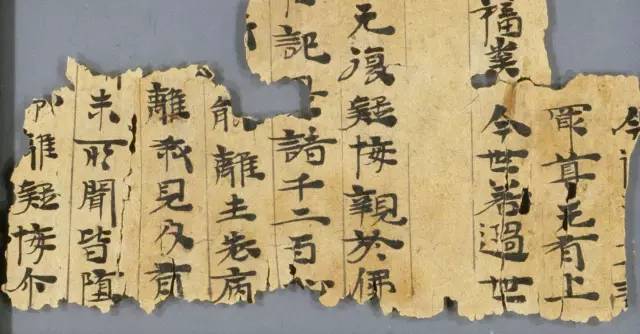 冣尊无有上
福業今世若過世
无復疑悔親於佛
記是諸千二百心
能離生老病
離我見及有
未所聞皆墮
離疑悔尒